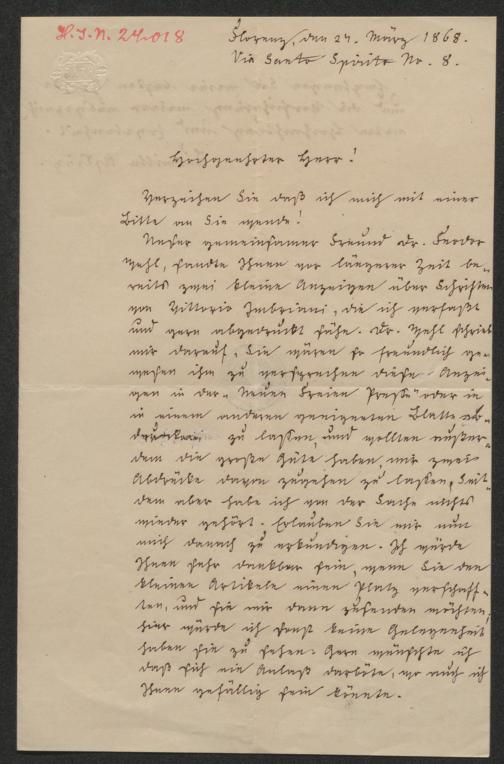 H.I.N. 24.018
Florenz, den 24. März 1868.
Via Santo Spirito No. 8.
Hochgeehrter Herr!
Verzeihen Sie daß ich mich mit einer
Bitte an Sie wende!
Unser gemeinsamer Freund Dr. Feodor
Wehl, sandte Ihnen vor längerer Zeit be-
reits zwei kleine Anzeigen über Schriften
von Vittorio Imbriani, die ich verfaßt
und gern abgedruckt sähe. Dr. Wehl schrieb
mir darauf, Sie wären so freundlich ge-
wesen ihm zu versprechen diese Anzei-
gen in der „Neuen Freien Presse" oder in
in einem anderen geeigneten Blatte ab-
drucken zu lassen, und wollten außer-
dem die große Güte haben, mir zwei
Abdrücke davon zugehen zu lassen. Seit-
dem aber habe ich von der Sache nichts
wieder gehört. Erlauben Sie mir nun
mich danach zu erkundigen. Ich würde
Ihnen sehr dankbar sein, wenn Sie den
kleinen Artikeln einen Platz verschaff-
ten, und sie mir dann zusenden möchten,
hier würde ich sonst keine Gelegenheit
haben sie zu sehen. Gern wünschte ich
daß sich ein Anlaß darböte, wo auch ich
Ihnen gefällig sein könnte.